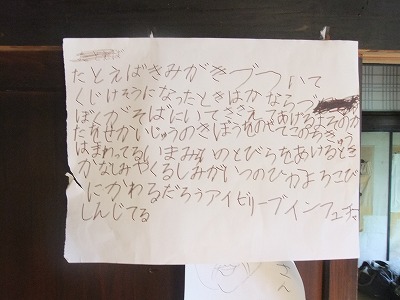 たとえばきみがきづついて
くじけそうになったときはかならづ
ぼくがそばにいてささえてあげるよそのか
たをせかいじゅうのきぼうをのせてこのちきう
はまわってるいまみらいのとびらをあけるとき
かなしみやくるしみがいつのひかよろこび
にかわるだろうアイビリーブインフュチャ
しんじてる
さん